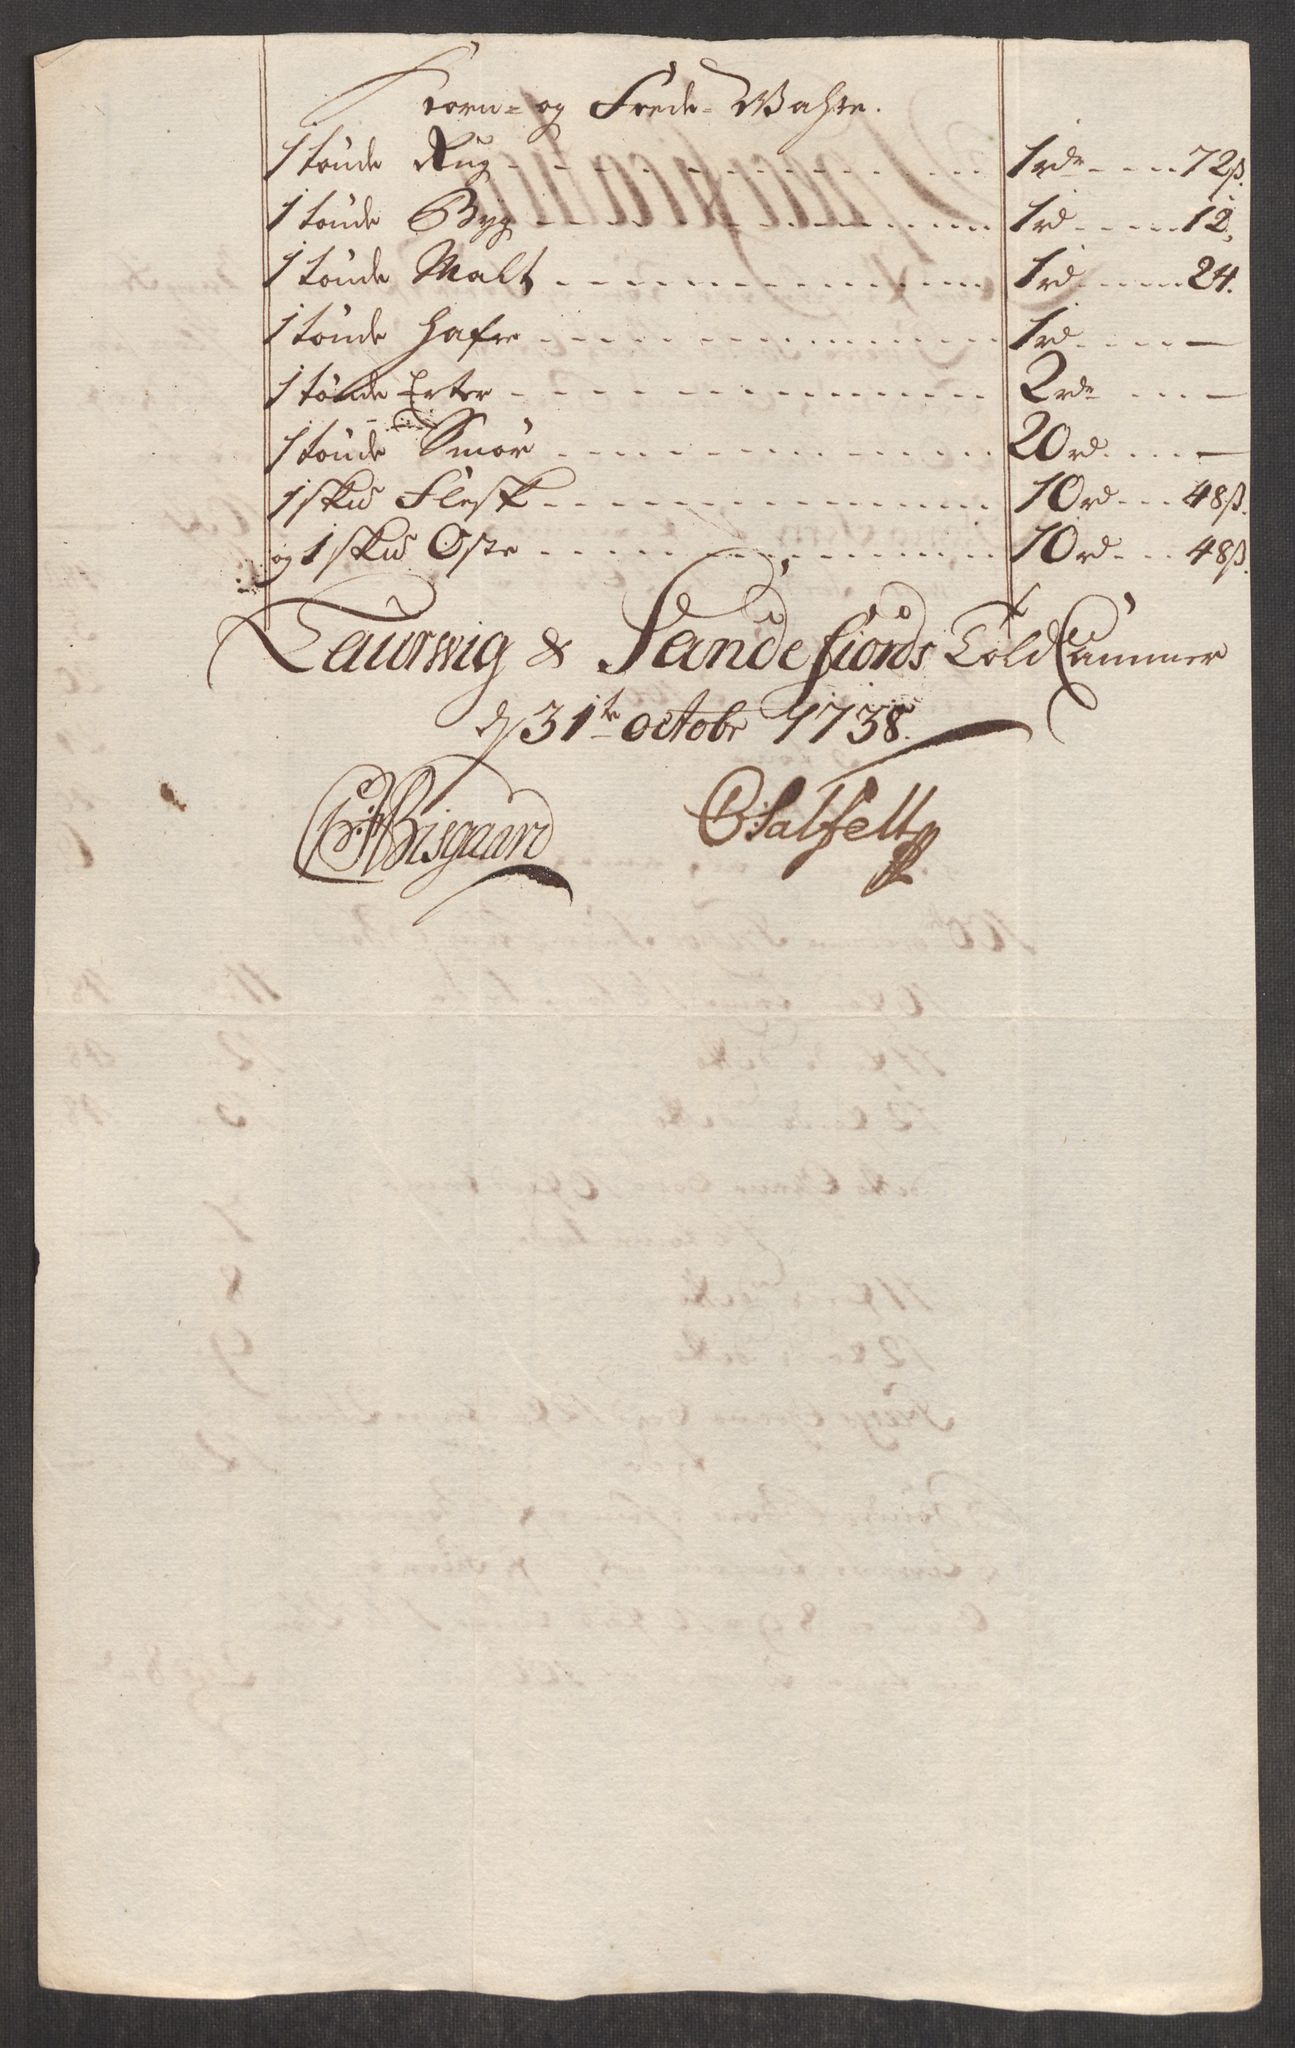 Korn- og Fede-Wahre.
1 tönde Rug - - - 1 rdr - - - 72 ß.
1 tönde Byg - - - 1 rd - - - 12.
1 tönde Malt - - - 1 rd - - - 24.
1 tönde Hafre - - - 1 rd - - - —
1 tönde Erter - - - 2 rdr - - - —
1 tönde Smör - - - 20 rd - - - —
1 skud Flesk - - - 10 rd - - - 48 ß.
og 1 skud Oste - - - 10 rd - - - 48 ß.
Laurwig & Sandefiords Told Cammer
d 31te octobr 1738.
Bisgaard Salfelt